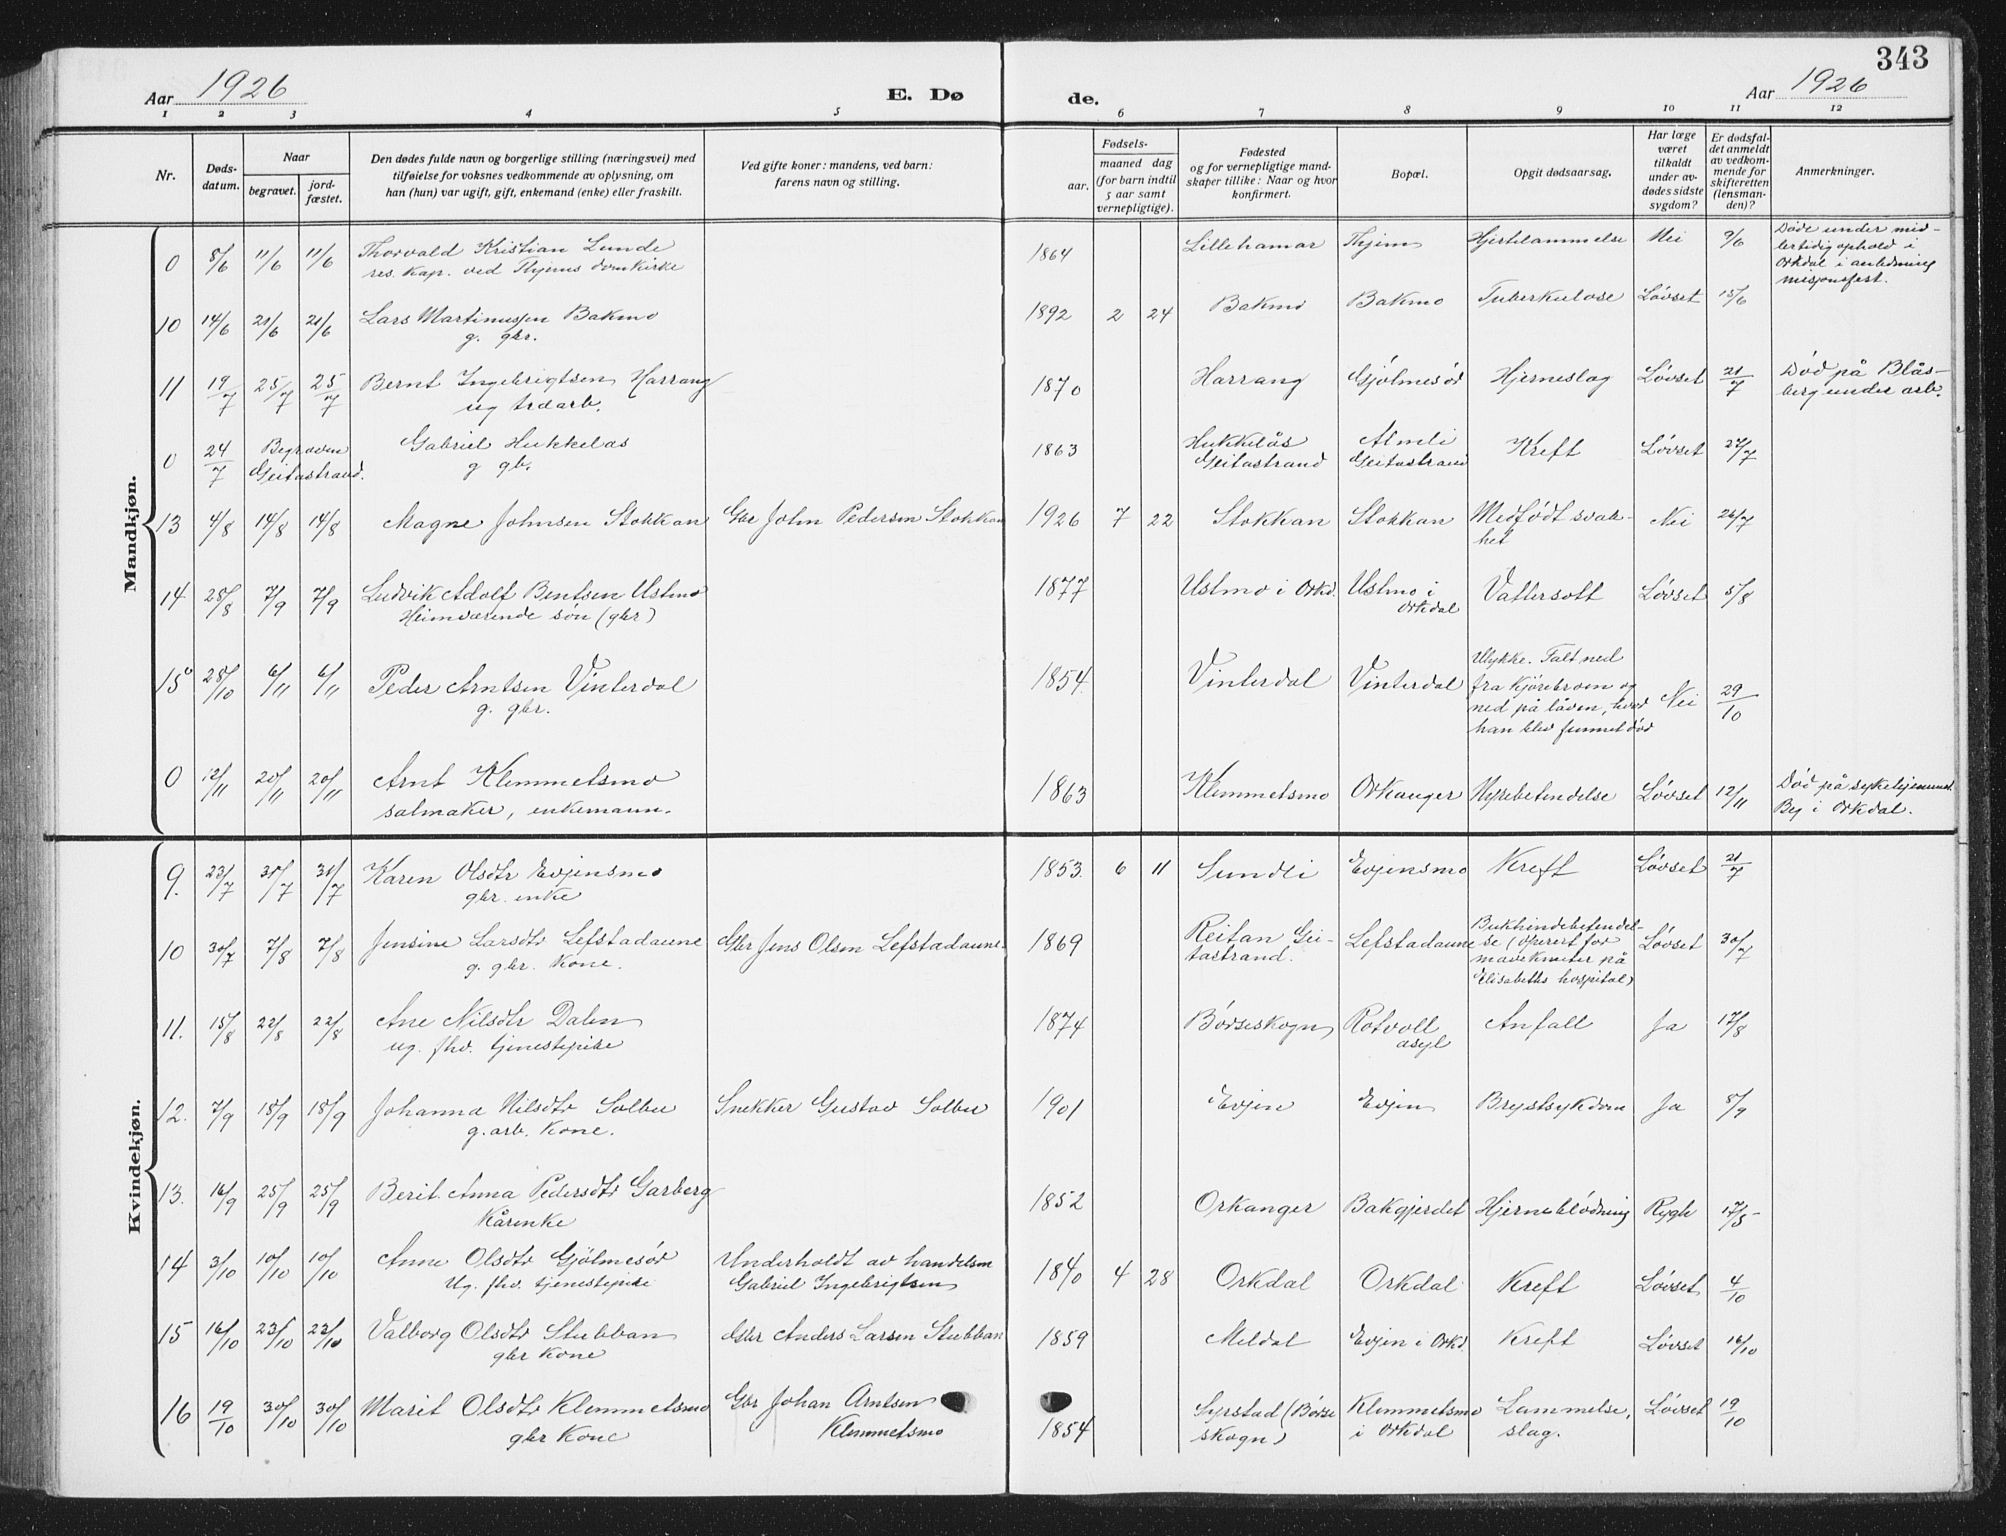 343
Aar 1926
E. Dø
de.
Aar 1926
1 2 3 4 5 6 7 8 9 10 11 12
Nr.
Døds-
datum.
Naar
begravet.
jord-
fæstet.
Den dødes fulde navn og borgerlige stilling (næringsvei) med
tilføielse for voksnes vedkommende av oplysning, om
han (hun) var ugift, gift, enkemand (enke) eller fraskilt.
Ved gifte koner: mandens, ved barn:
farens navn og stilling.
Fødsels-
aar.
maaned dag
(for barn indtil
5 aar samt
vernepligtige).
Fødested
og for vernepligtige mand-
skaper tillike: Naar og hvor
konfirmert.
Bopæl.
Opgit dødsaarsag.
Har læge
været
tilkaldt
under av-
dødes sidste
sygdom?
Er dødsfal-
det anmeldt
av vedkom-
mende for
skifteretten
(lensman-
den)?
Anmerkninger.
Mandkjøn.
0 8/6 11/6 11/6 Thorvald Kristian Lunde 1864 Lillehamar Thjem Hjertelammelse Nei 9/6 Døde under mid-
res. kap. ved Thjems domkirke lertidig ophold i
Orkdal i anledning
misjonsfest.
10 14/6 21/6 21/6 Lars Martinussen Bakmo 1892 2 24 Bakmo Bakmo Tuberkulose Løvset 15/6
g. gbr.
11 19/7 25/7 25/7 Bernt Ingebrigtsen Harrang 1870 Harrang Gjølmesør Hjerneslag Løvset 21/7 Død på Blås-
ug. berg under arb.
0 24/7 Begraven Gabriel Hukkelås 1863 Hukkelås Almli Kreft Løvset 27/7
Geitastrand. g gb. Geitastrand Geitastrand
13 4/8 14/8 14/8 Magne Johnsen Stokkan Gbr John Pedersen Stokkan 1926 7 22 Stokkan Stokkan Medfødt svak- Nei 26/7
het
14 28/8 7/9 7/9 Ludvik Adolf Bentsen Ustmo 1877 Ustmo i Orkd. Ustmo i Vattersott Løvset 5/8
Heimværende søn (gbr) Orkdal
15 28/10 6/11 6/11 Peder Arntsen Vinterdal 1854 Vinterdal Vinterdal Ulykke. Falt ned Nei 29/10
g. gbr. fra kjørebroen og
ned på låven, hvor
han blev funnet død
0 12/11 20/11 20/11 Arnt Klemmetsmo 1863 Klemmetsmo Orkanger Nyrebetendelse Løvset 12/11 Død på sykehjemmet
salmaker, enkemann. Bej i Orkdal.
Kvindekjøn.
9. 23/7 31/7 31/7 Karen Olsdtr Evjensmo 1853 6 11 Sundli Evjensmo Kreft Løvset 21/7
gbr. enke
10 30/7 7/8 7/8 Jensine Larsdtr Lefstadaune Gbr Jens Olsen Lefstadaune 1869 Reitan Gei- Lefstadaune Bukhindebetendel- Løvset 30/7
g. gbr. kone. tastrand. se (operert for
maveknuter på
Elisabeths hospital)
11. 15/8 22/8 22/8 Ane Nilsdtr Dalen 1874 Børseskogn Rotvoll Anfall Ja 17/8
ug. fhv. tjenestepike asyl
12. 7/9 15/9 15/9 Johanna Nilsdtr Solbu Snekker Gustav Solbu 1901 Evjen Evjen Brystsykdom Ja 8/9
g. arb. kone.
13. 16/9 25/9 25/9 Berit Anna Pedersdtr Garberg 1852 Orkanger Bakgjerdet Hjerneblødning Rygh 17/5
Kårenke
14 3/10 10/10 10/10 Anne Olsdtr Gjølmesør Underholdt av handelsm 1840 4 28 Orkdal Orkdal Kreft Løvset 4/10
Ug. fhv. tjenestepike Gabriel Ingebrigtsen
15 16/10 23/10 23/10 Valborg Olsdtr Stubban Gbr Anders Larsen Stubban 1859 Meldal Evjen i Orkd. Kreft Løvset 16/10
gbr kone
16 19/10 30/10 30/10 Marit Olsdtr Klemmetsmo Gbr Johan Arntsen 1854 Syrstad (Børse Klemmetsmo Lammelse, Løvset 19/10
gbr kone Klemmetsmo skogn) i Orkdal slag.